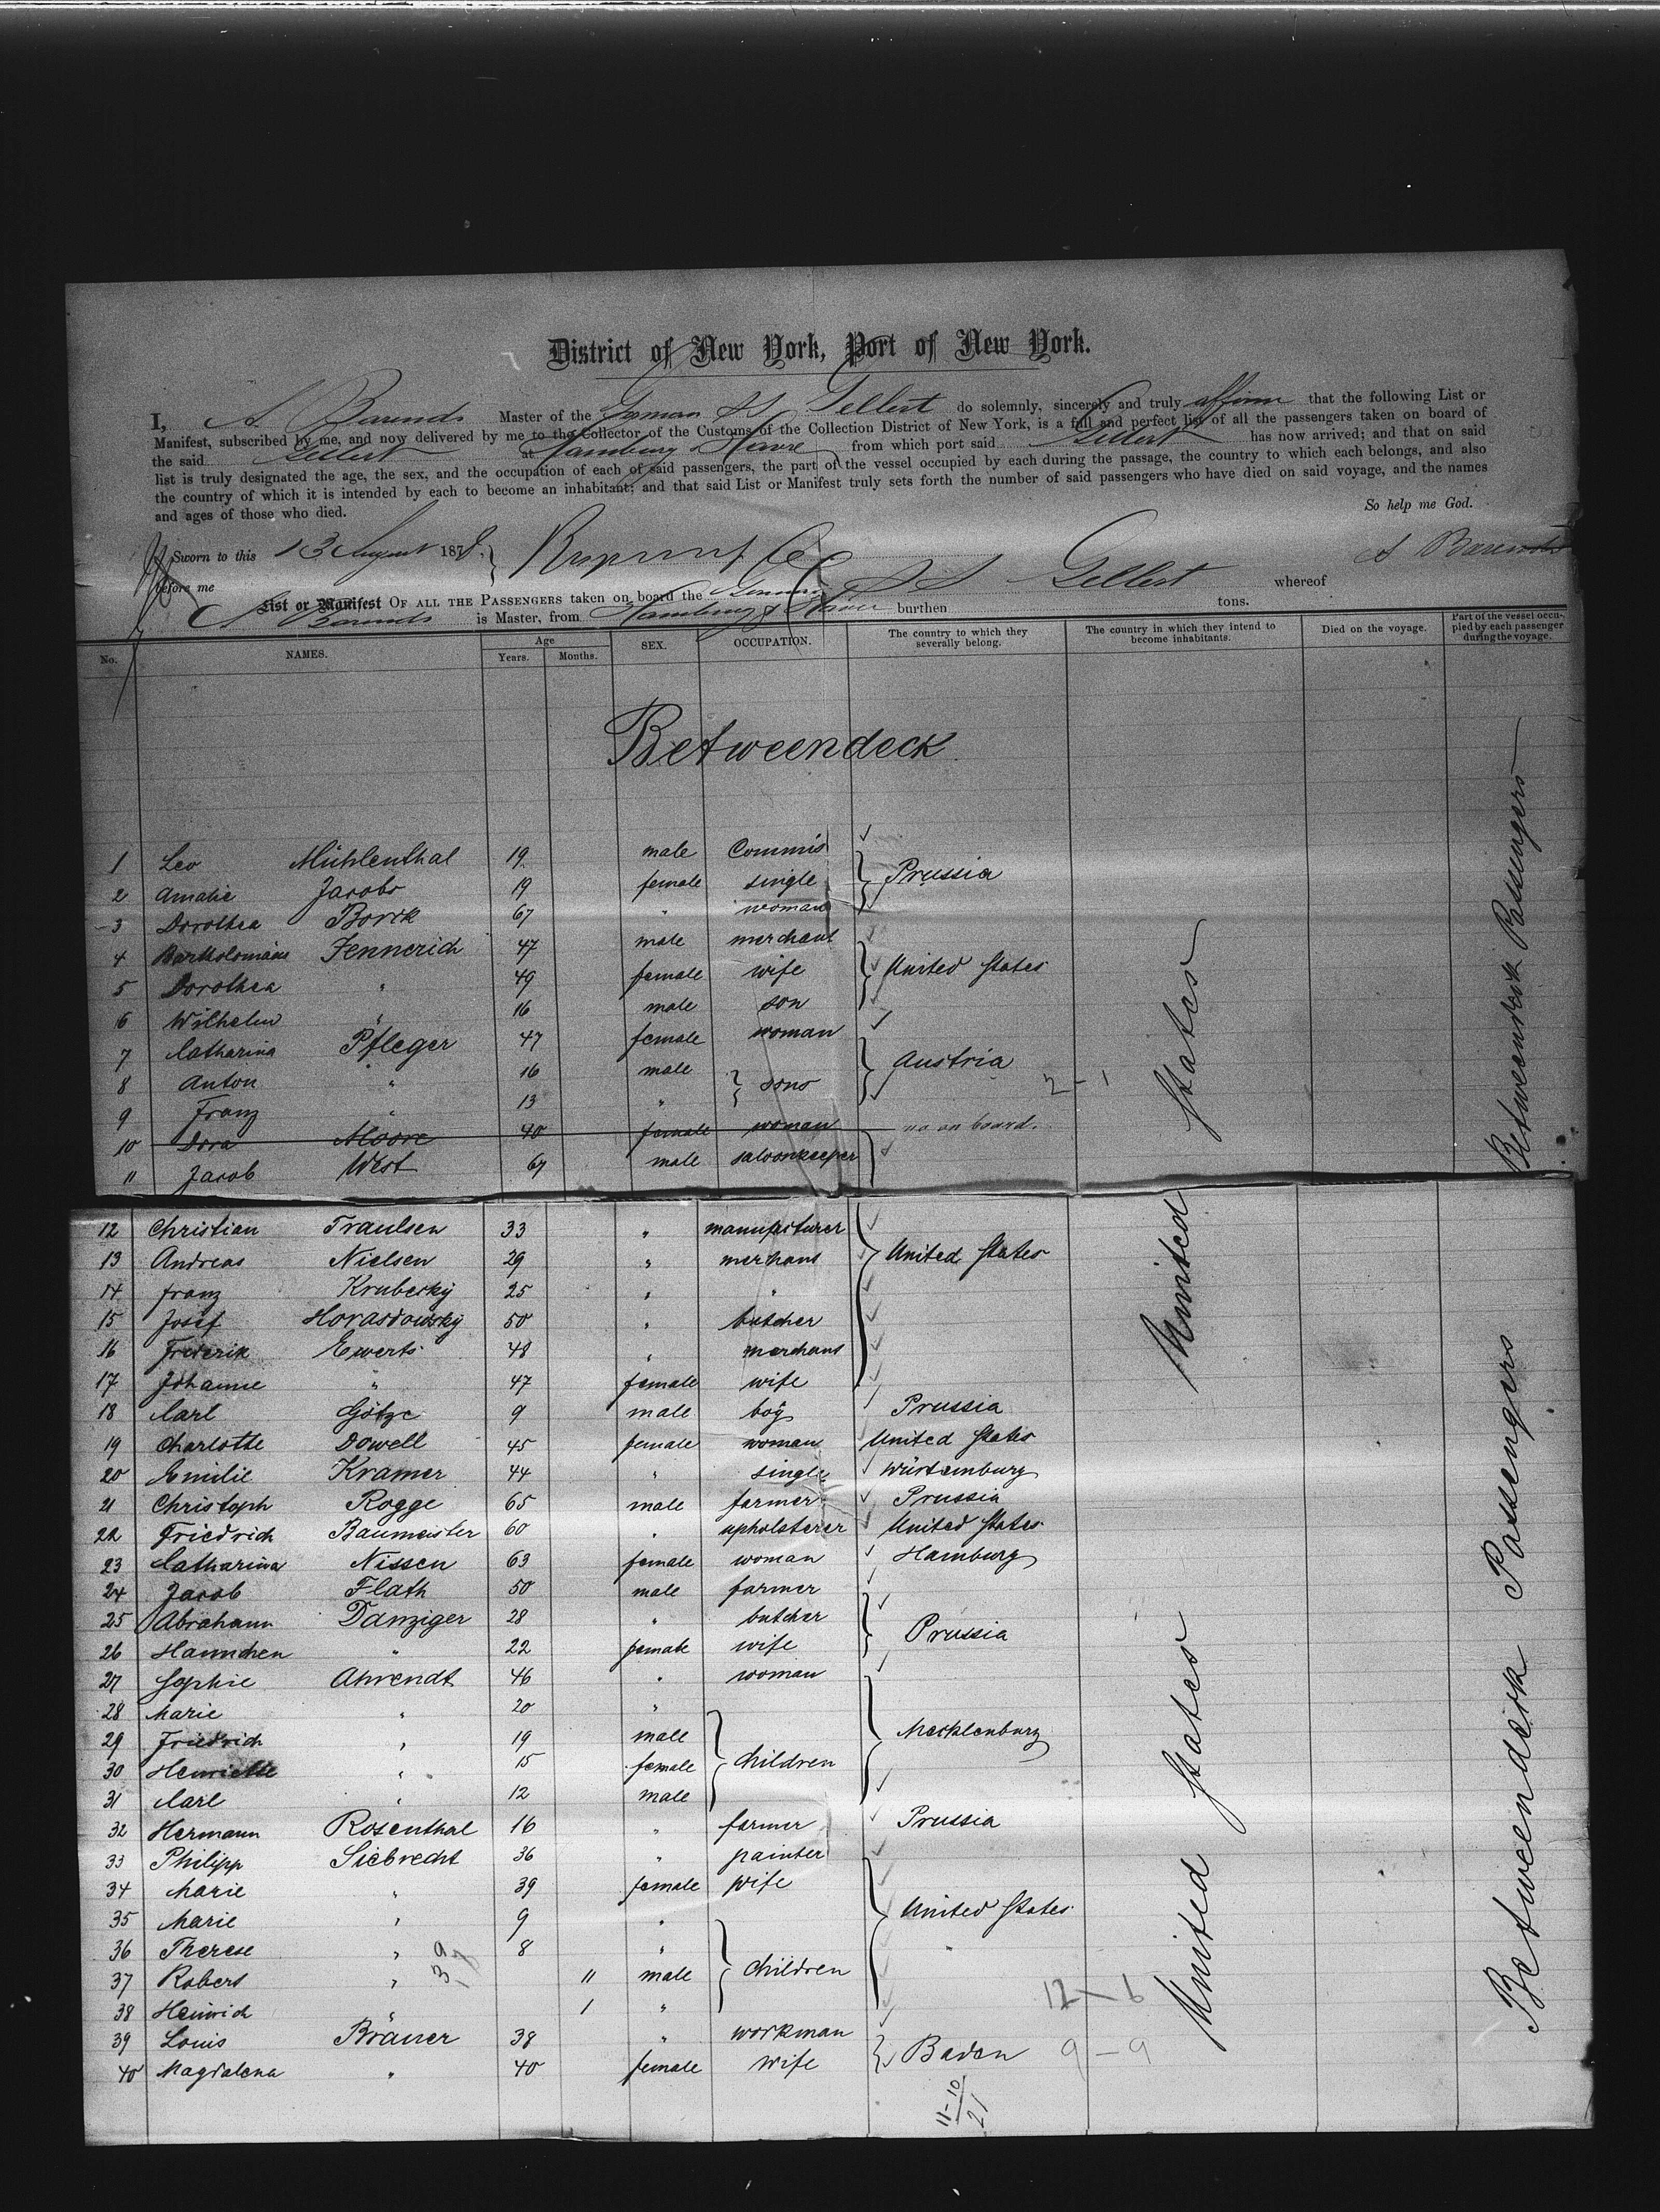 District of New York, Port of New York.
I, A. Barends Master of the German SS Gellert do solemnly, sincerely and truly affirm that the following List or
Manifest, subscribed by me, and now delivered by me to the Collector of the Customs of the Collection District of New York, is a full and perfect list of all the passengers taken on board of
the said Gellert at Hamburg & Havre from which port said Gellert has now arrived; and that on said
list is truly designated the age, the sex, and the occupation of each of said passengers, the part of the vessel occupied by each during the passage, the country to which each belongs, and also
the country of which it is intended by each to become an inhabitant; and that said List or Manifest truly sets forth the number of said passengers who have died on said voyage, and the names
and ages of those who died. So help me God.
Sworn to this 13 August 1878. A Barends
before me
List or Manifest OF ALL THE PASSENGERS taken on board the German SS Gellert whereof
A Barends is Master, from Hamburg & Havre burthen tons.
No. NAMES. Age Years. Months. SEX. OCCUPATION. The country to which they severally belong. The country in which they intend to become inhabitants. Died on the voyage. Part of the vessel occupied by each passenger during the voyage.
Betweendeck
1 Leo Mühlenthal 19 male Commis
2 Amalie Jacobs 19 female single Prussia
3 Dorothea Borck 67 " woman
4 Bartholomäus Jennerich 47 male merchant
5 Dorothea " 49 female wife United States
6 Wilhelm " 16 male son
7 Catharina Pfleger 47 female woman
8 Anton " 16 male sons Austria 2-1
9 Franz " 13 "
10 Dora Moore 40 female woman no on board.
11 Jacob West 67 male saloonkeeper
12 Christian Traulsen 33 " manufacturer
13 Andreas Nielsen 29 " merchant United States
14 Franz Krubecky 25 " "
15 Josef Horasdowsky 50 " butcher
16 Frederik Ewerts 48 " merchant
17 Johanne " 47 female wife
18 Carl Götze 9 male boy Prussia
19 Charlotte Dowell 45 female woman United States
20 Emilie Kramer 44 " single Würtemburg
21 Christoph Rogge 65 male farmer Prussia
22 Friedrich Baumeister 60 " upholsterer United States
23 Catharina Nissen 63 female woman Hamburg
24 Jacob Flath 50 male farmer
25 Abraham Danziger 28 " butcher Prussia
26 Hannchen " 22 female wife
27 Sophie Ahrendt 46 " woman
28 Marie " 20 "
29 Friedrich " 19 male Mecklenburg
30 Henriette " 15 female Children
31 Carl " 12 male
32 Hermann Rosenthal 16 " farmer Prussia
33 Philipp Siebrecht 36 " painter
34 Marie " 39 female wife
35 Marie " 9 " United States
36 Therese " 8 "
37 Robert " 11 male Children
38 Heinrich " 1 " 12-6
39 Louis Bräuer 38 " workman
40 Magdalena " 40 female wife Baden 9-9
11-10
21
United States
United States
Betweendeck Passengers
Betweendeck Passengers